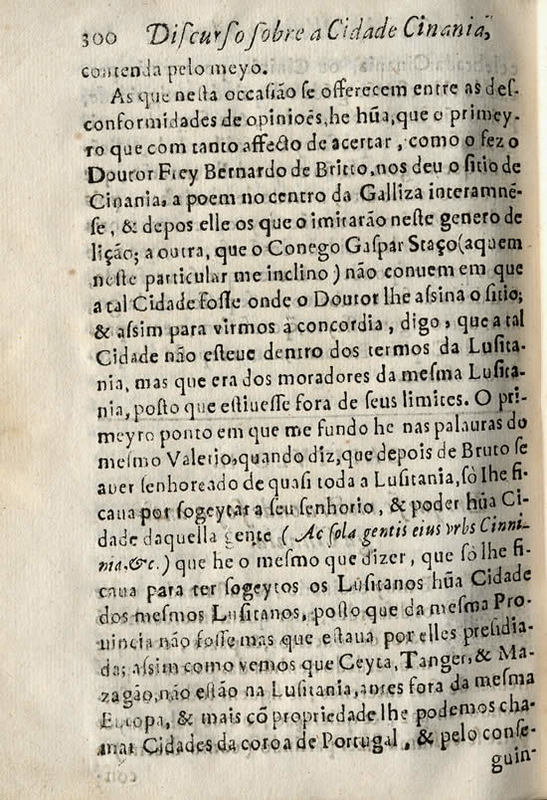 300 Diſcurſo ſobre a Cidade Cinania,
contenda pelo meyo.
As que neſta occaſião ſe offerecem entre as deſ-
conformidades de opinioẽs, he hũa, que o primey-
ro que com tanto affecto de acertar, como o fez o
Doutor Frey Bernardo de Britto, nos deu o ſitio de
Cinania, a poem no centro da Galliza interamnẽ-
ſe, & depos elle os que o imitarão neſte genero de
lição; a outra, que o Conego Gaſpar Staço (aquem
neſte particular me inclino) não conuem em que
a tal Cidade foſſe onde o Doutor lhe aſſina o ſitio;
& aſsim para virmos à concordia, digo, que a tal
Cidade não eſteue dentro dos termos da Luſita-
nia, mas que era dos moradores da meſma Luſita-
nia, poſto que eſtiueſſe fora de ſeus limites. O pri-
meyro ponto em que me fundo he nas palauras do
meſmo Valerio, quando diz, que depois de Bruto ſe
auer ſenhoreado de quaſi toda a Luſitania, ſò lhe fi-
caua por ſogeytar a ſeu ſenhorio, & poder hũa Ci-
dade daquella gente (Ac ſola gentis eius vrbs Cinni-
nia. &c.) que he o meſmo que dizer, que ſò lhe fi-
caua para ter ſogeytos os Luſitanos hũa Cidade
dos meſmos Luſitanos, poſto que da meſma Pro-
uincia não foſſe mas que eſtaua por elles preſidia-
da; aſsim como vemos que Ceyta, Tanger, & Ma-
zagão, não eſtão na Luſitania, antes fora da meſma
Europa, & mais cõ propriedade lhe podemos cha-
mar Cidades da coroa de Portugal, & pelo conſe-
guin-